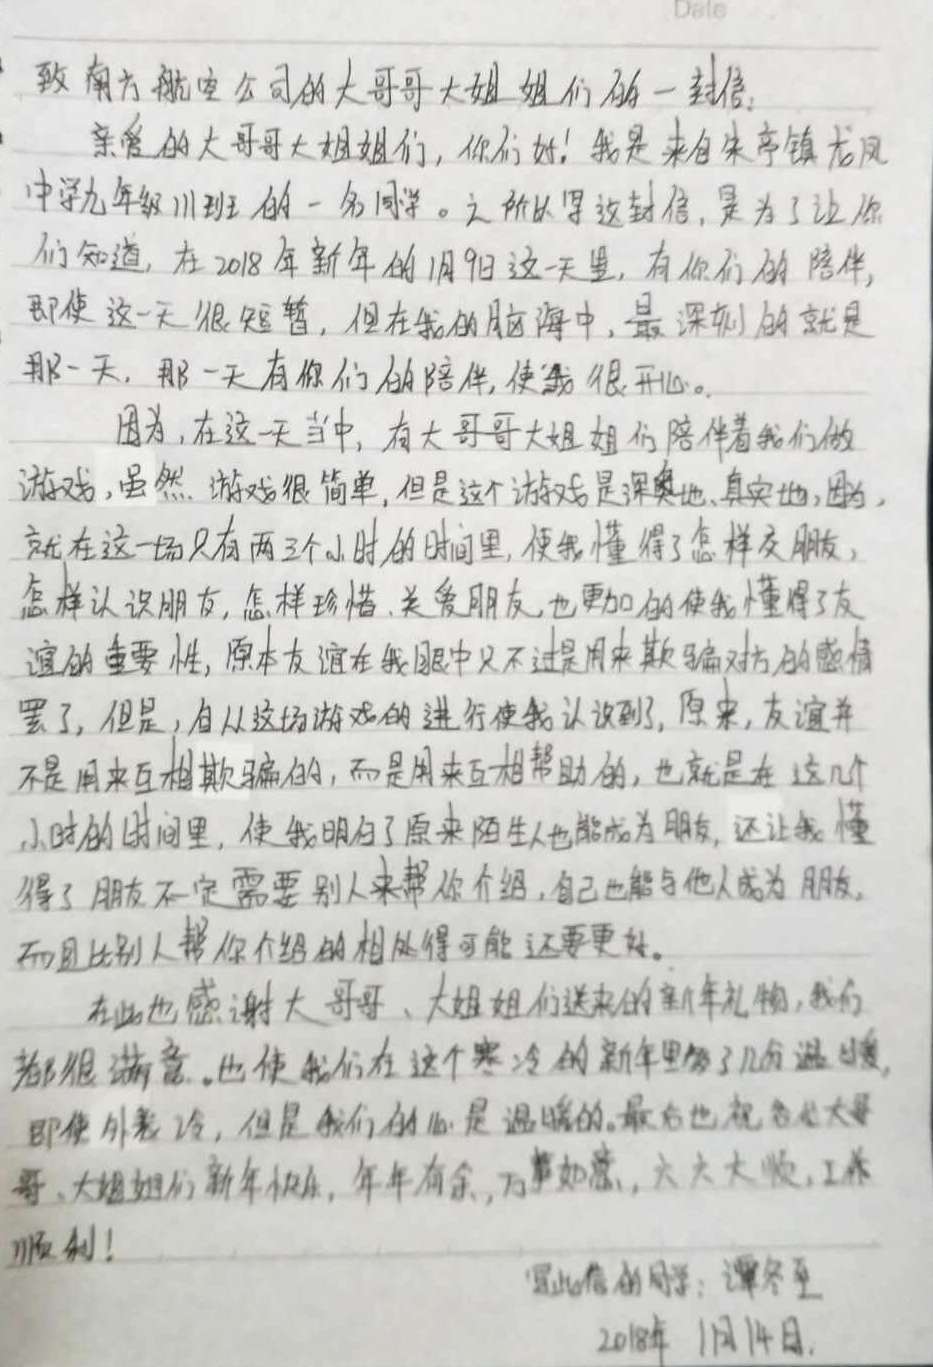 Date
致南方航空公司的大哥哥大姐姐们的一封信:
亲爱的大哥哥大姐姐们,你们好!我是来自朱亭镇龙凤
中学九年级111班的一名同学。之所以写这封信,是为了让你
们知道,在2018年新年的1月9日这一天里,有你们的陪伴,
即使这一天很短暂,但在我的脑海中,最深刻的就是
那一天,那一天有你们的陪伴,使我很开心。
因为,在这一天当中,有大哥哥大姐姐们陪伴着我们做
游戏,虽然游戏很简单,但是这个游戏是深奥地、真实地,因为,
就在这一场只有两三个小时的时间里,使我懂得了怎样交朋友,
怎样认识朋友,怎样珍惜、关爱朋友,也更加的使我懂得了友
谊的重要性,原本友谊在我眼中只不过是用来欺骗对方的感情
罢了,但是,自从这场游戏的进行使我认识到了,原来,友谊并
不是用来互相欺骗的,而是用来互相帮助的,也就是在这几个
小时的时间里,使我明白了原来陌生人也能成为朋友,还让我懂
得了朋友不一定需要别人来帮你介绍,自己也能与他人成为朋友,
而且比别人帮你介绍的相处得可能还要更好。
在此也感谢大哥哥、大姐姐们送来的新年礼物,我们
都很满意。也使我们在这个寒冷的新年里够了几份温暖,
即使外表冷,但是我们的心是温暖的。最后也祝各位大哥
哥、大姐姐们新年快乐,年年有余,万事如意,六六大顺,工作
顺利!
写此信的同学:谭冬至
2018年 1月14日.